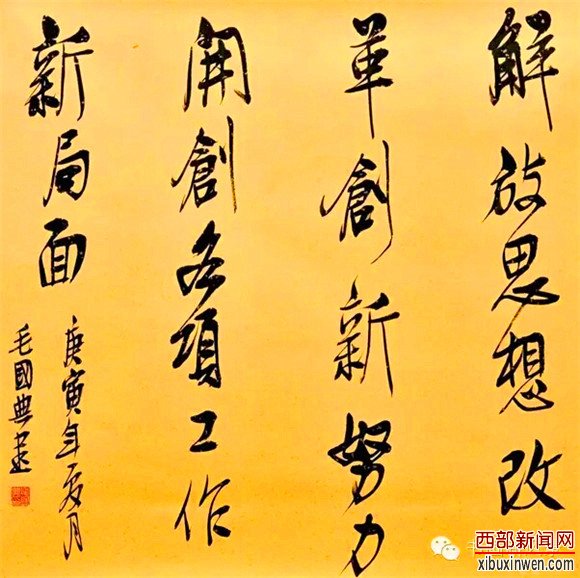 解放思想改
革創新努力
開創各項工作
新局面
庚寅年夏月
毛國典書
西部新闻网
xibuxinwen.com